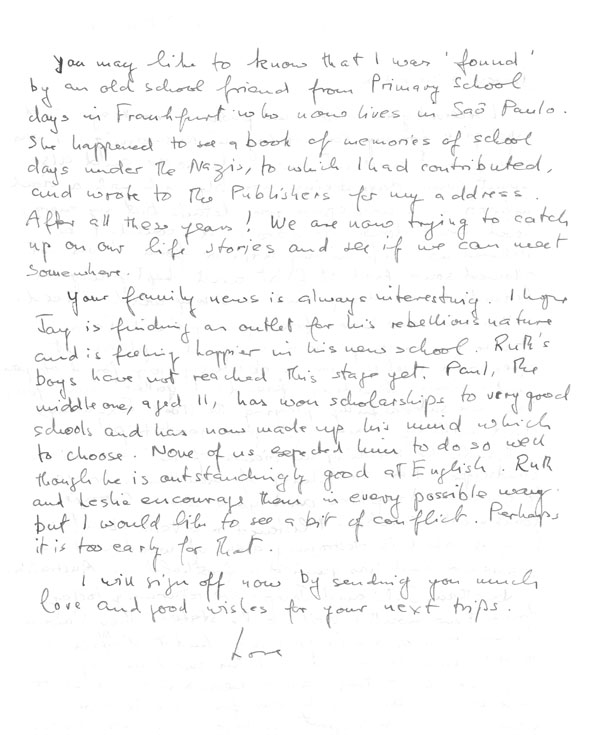 You may like to know that I was 'found'
by an old school friend from Primary School
days in Frankfurt who now lives in Saõ Paulo.
She happened to see a book of memories of school
days under the Nazis, to which I had contributed,
and wrote to the Publishers for my address.
After all these years! We are now trying to catch
up on our life stories and see if we can meet
somewhere.
Your family news is always interesting. I hope
Jay is finding an outlet for his rebellious nature
and is feeling happier in his new school. Ruth's
boys have not reached this stage yet. Paul, the
middle one, aged 11, has won scholarships to very good
schools and has now made up his mind which
to choose. None of us expected him to do so well
though he is outstandingly good at English. Ruth
and Leslie encourage them in every possible way
but I would like to see a bit of conflict. Perhaps
it is too early for that.
I will sign off now by sending you much
love and good wishes for your next trips.
Love